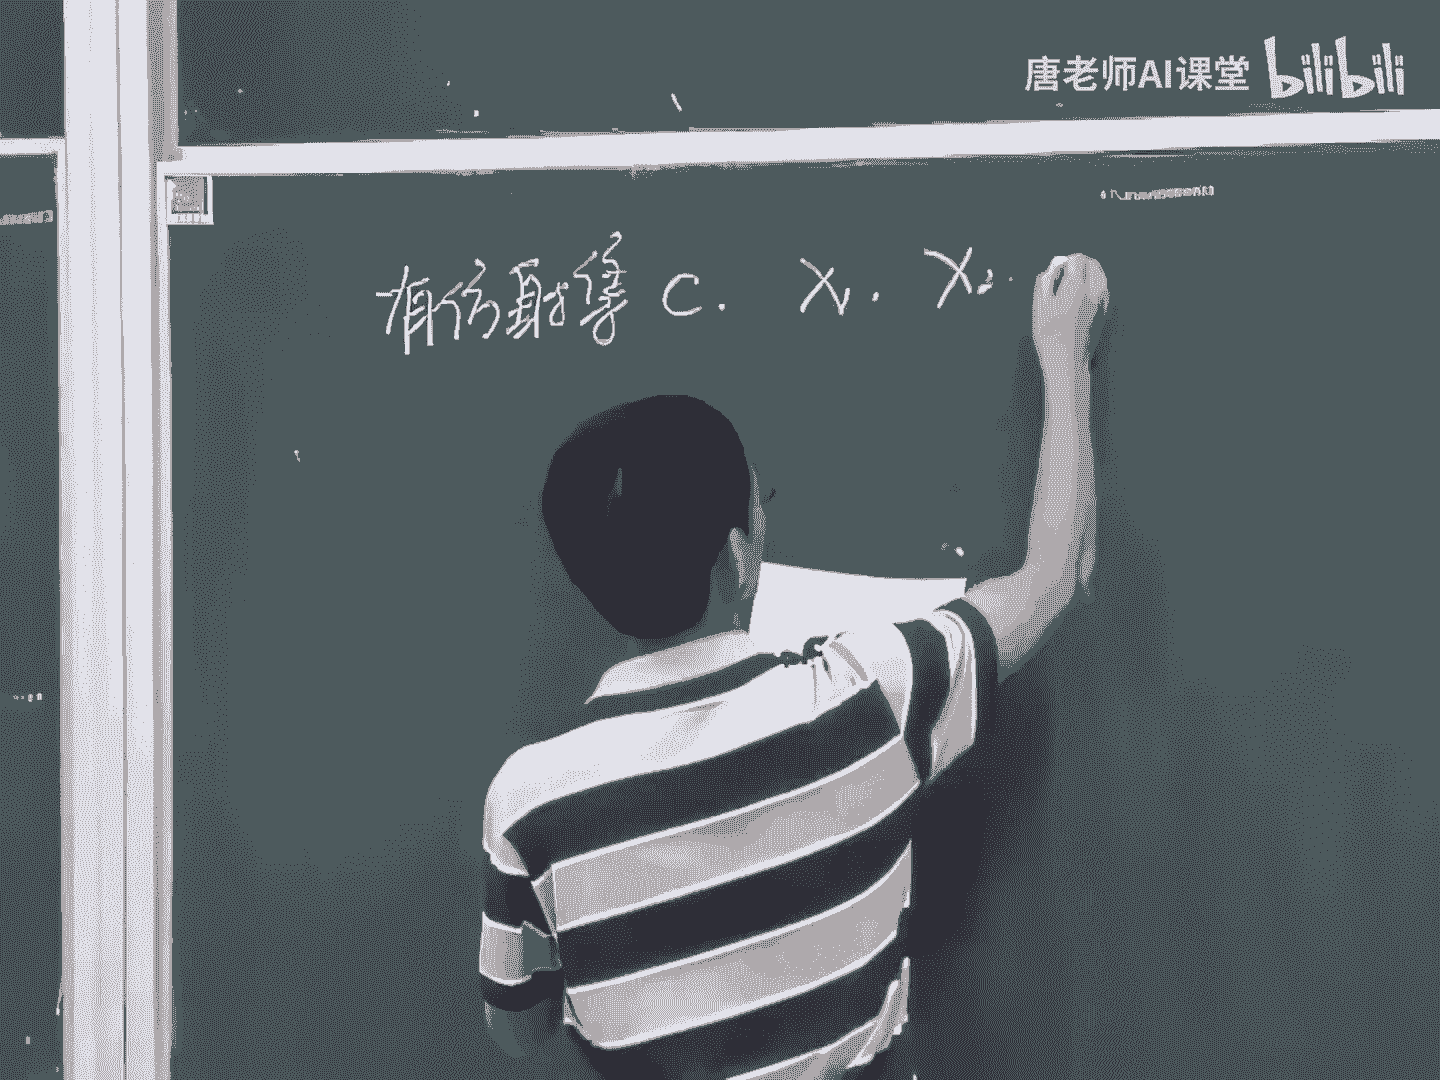 唐老师AI课堂 bilibili
有仿射集 C. X₁. X₂.